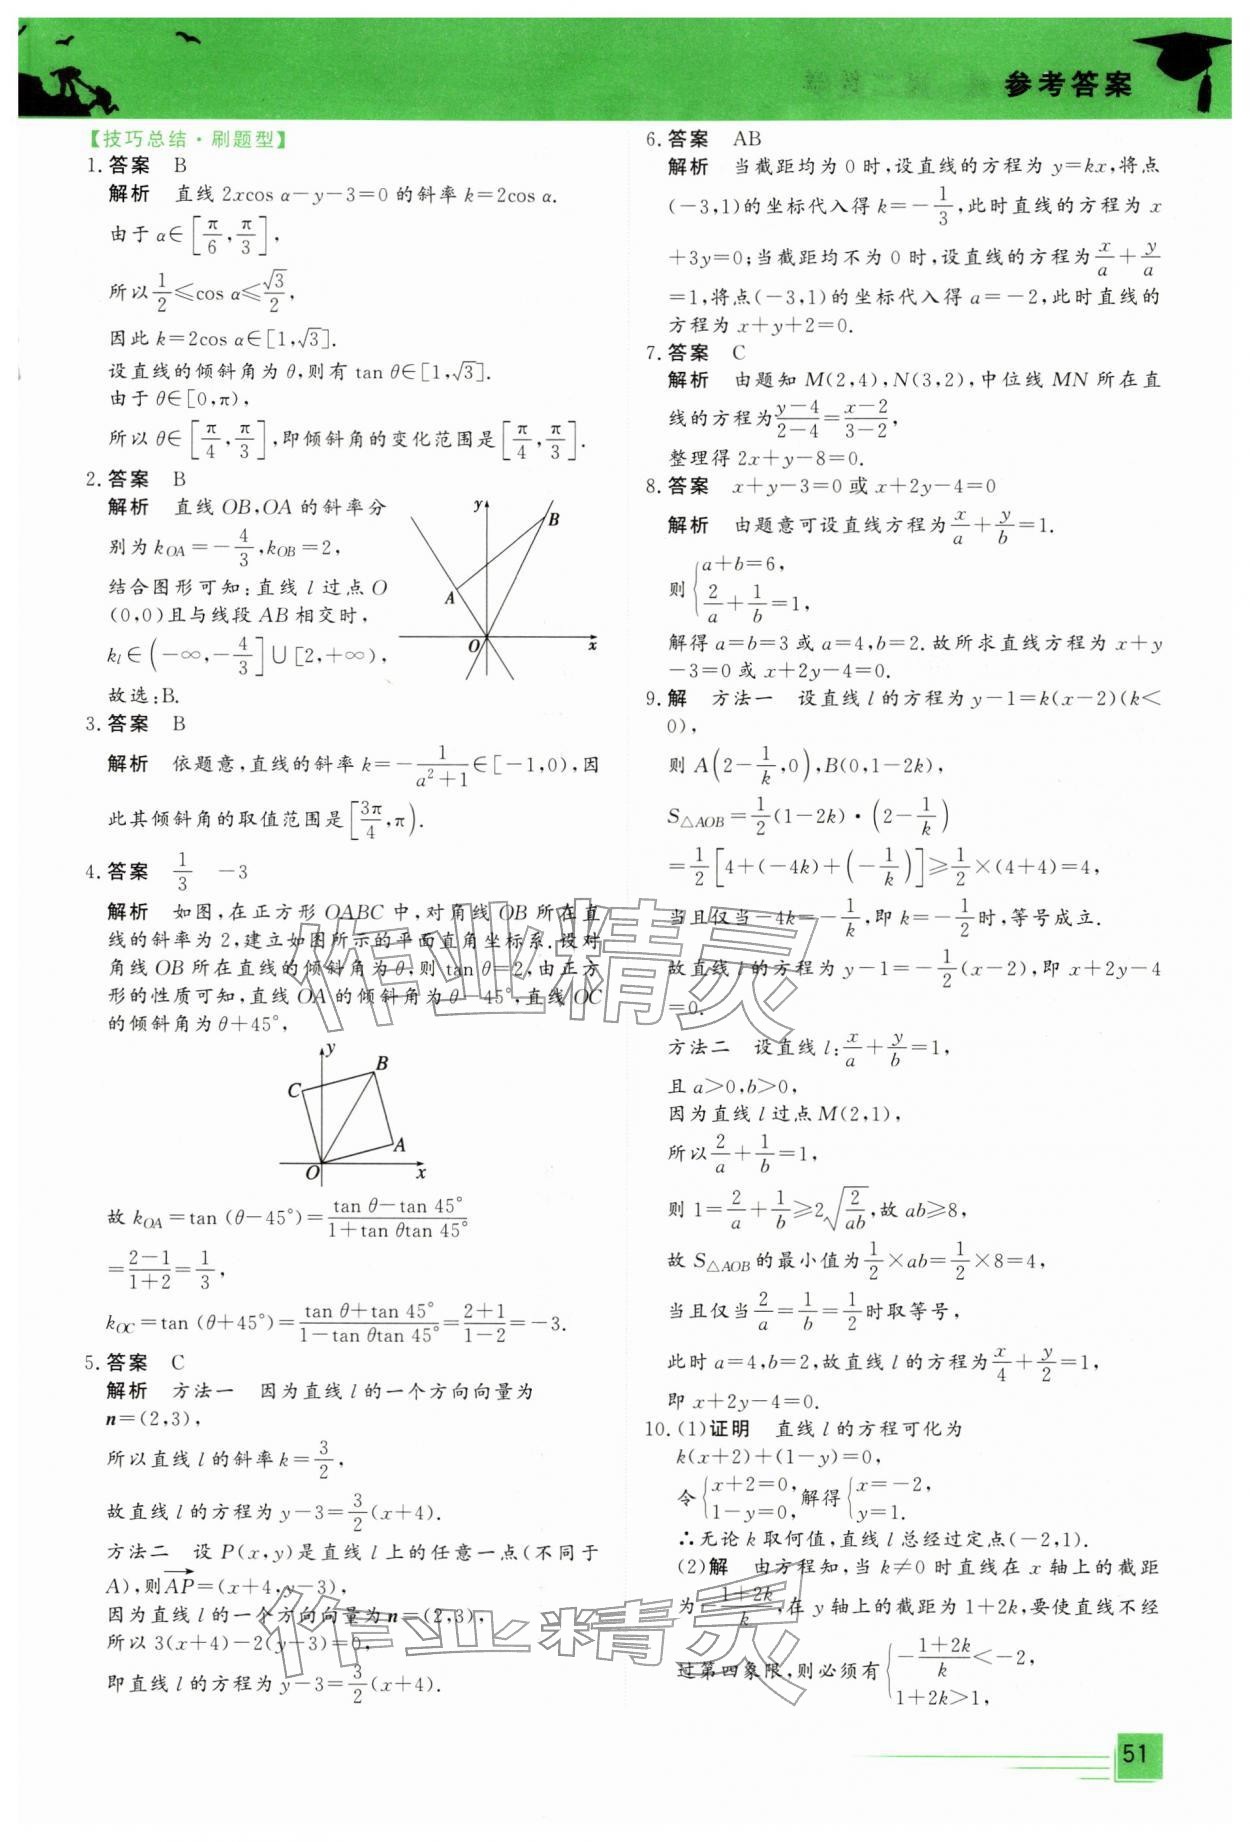 参考答案
【技巧总结·刷题型】
1. 答案 B
解析 直线 2xcos α－y－3＝0 的斜率 k＝2cos α.
由于 α∈[π/6,π/3],
所以 1/2≤cos α≤√3/2,
因此 k＝2cos α∈[1,√3].
设直线的倾斜角为 θ,则有 tan θ∈[1,√3].
由于 θ∈[0,π),
所以 θ∈[π/4,π/3],即倾斜角的变化范围是[π/4,π/3].
2. 答案 B
解析 直线 OB,OA 的斜率分
别为 kOA＝－4/3,kOB＝2,
结合图形可知:直线 l 过点 O
(0,0)且与线段 AB 相交时,
kl∈(－∞,－4/3]∪[2,＋∞),
故选:B.
y
B
A
O
x
3. 答案 B
解析 依题意,直线的斜率 k＝－1/(a²＋1)∈[－1,0),因
此其倾斜角的取值范围是[3π/4,π).
4. 答案 1/3 －3
解析 如图,在正方形 OABC 中,对角线 OB 所在直
线的斜率为 2,建立如图所示的平面直角坐标系.设对
角线 OB 所在直线的倾斜角为 θ,则 tan θ＝2,由正方
形的性质可知,直线 OA 的倾斜角为 θ－45°,直线 OC
的倾斜角为 θ＋45°,
y
B
C
A
O
x
故 kOA＝tan (θ－45°)＝(tan θ－tan 45°)/(1＋tan θtan 45°)
＝(2－1)/(1＋2)＝1/3,
kOC＝tan (θ＋45°)＝(tan θ＋tan 45°)/(1－tan θtan 45°)＝(2＋1)/(1－2)＝－3.
5. 答案 C
解析 方法一 因为直线 l 的一个方向向量为
n＝(2,3),
所以直线 l 的斜率 k＝3/2,
故直线 l 的方程为 y－3＝3/2(x＋4).
方法二 设 P(x,y)是直线 l 上的任意一点(不同于
A),则AP＝(x＋4,y－3),
因为直线 l 的一个方向向量为 n＝(2,3),
所以 3(x＋4)－2(y－3)＝0,
即直线 l 的方程为 y－3＝3/2(x＋4).
6. 答案 AB
解析 当截距均为 0 时,设直线的方程为 y＝kx,将点
(－3,1)的坐标代入得 k＝－1/3,此时直线的方程为 x
＋3y＝0;当截距均不为 0 时,设直线的方程为x/a＋y/a
＝1,将点(－3,1)的坐标代入得 a＝－2,此时直线的
方程为 x＋y＋2＝0.
7. 答案 C
解析 由题知 M(2,4),N(3,2),中位线 MN 所在直
线的方程为(y－4)/(2－4)＝(x－2)/(3－2),
整理得 2x＋y－8＝0.
8. 答案 x＋y－3＝0 或 x＋2y－4＝0
解析 由题意可设直线方程为x/a＋y/b＝1.
则{a＋b＝6,
2/a＋1/b＝1,
解得 a＝b＝3 或 a＝4,b＝2.故所求直线方程为 x＋y
－3＝0 或 x＋2y－4＝0.
9. 解 方法一 设直线 l 的方程为 y－1＝k(x－2)(k<
0),
则 A(2－1/k,0),B(0,1－2k),
S△AOB＝1/2(1－2k)·(2－1/k)
＝1/2[4＋(－4k)＋(－1/k)]≥1/2×(4＋4)＝4,
当且仅当－4k＝－1/k,即 k＝－1/2时,等号成立.
故直线 l 的方程为 y－1＝－1/2(x－2),即 x＋2y－4
＝0.
方法二 设直线 l:x/a＋y/b＝1,
且 a>0,b>0,
因为直线 l 过点 M(2,1),
所以2/a＋1/b＝1,
则 1＝2/a＋1/b≥2√(2/ab),故 ab≥8,
故 S△AOB 的最小值为1/2×ab＝1/2×8＝4,
当且仅当2/a＝1/b＝1/2时取等号,
此时 a＝4,b＝2,故直线 l 的方程为x/4＋y/2＝1,
即 x＋2y－4＝0.
10. (1)证明 直线 l 的方程可化为
k(x＋2)＋(1－y)＝0,
令{x＋2＝0, 1－y＝0,解得{x＝－2, y＝1.
∴无论 k 取何值,直线 l 总经过定点(－2,1).
(2)解 由方程知,当 k≠0 时直线在 x 轴上的截距
为－(1＋2k)/k,在 y 轴上的截距为 1＋2k,要使直线不经
过第四象限,则必须有{－(1＋2k)/k<－2,
1＋2k>1,
作业精灵
作业精灵
51